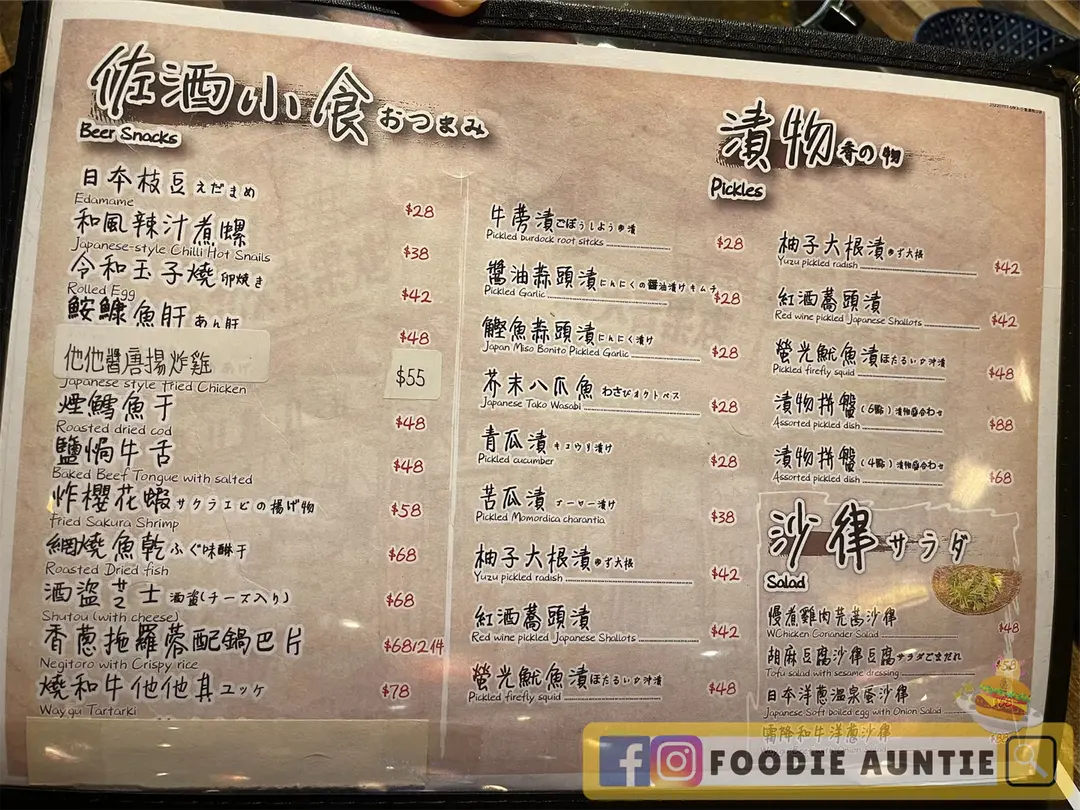 佐酒小食 おつまみ
Beer Snacks
日本枝豆 えだまめ
Edamame $28
和風辣汁煮螺
Japanese-style Chilli Hot Snails $38
令和玉子燒 卵焼き
Rolled Egg $42
鮟鱇魚肝 あん肝
$48
他他醬唐揚炸雞
Japanese style fried Chicken $55
煙鱈魚干
Roasted dried cod $48
鹽焗牛舌
Baked Beef Tongue with salted $48
炸櫻花蝦 サクラエビの揚げ物
fried Sakura Shrimp $58
網燒魚乾 ふぐ味醂干
Roasted Dried fish $68
酒盜芝士 酒盗(チーズ入り)
Shutou (with cheese) $68
香蔥拖羅蓉配鍋巴片
Negitoro with Crispy rice $68/214
燒和牛他他 ユッケ
Waygu Tartarki $78
牛蒡漬 ごぼうしょうゆ漬
Pickled burdock root sitcks $28
醬油蒜頭漬 にんにくの醤油漬けキムチ
Pickled Garlic $28
鰹魚蒜頭漬 にんにく漬け
Japan Miso Bonito Pickled Garlic $28
芥末八爪魚 わさびオクトパス
Japanese Tako Wasabi $28
青瓜漬 キュウリ漬け
Pickled cucumber $28
苦瓜漬 ゴーヤー漬け
Pickled Momordica charantia $38
柚子大根漬 ゆず大根
Yuzu pickled radish $42
紅酒蕎頭漬
Red wine pickled Japanese Shallots $42
螢光魷魚漬 ほたるいか沖漬
Pickled firefly squid $48
漬物 香の物
Pickles
柚子大根漬 ゆず大根
Yuzu pickled radish $42
紅酒蕎頭漬
Red wine pickled Japanese Shallots $42
螢光魷魚漬 ほたるいか沖漬
Pickled firefly squid $48
漬物拼盤 (6點) 漬物盛合わせ
Assorted pickled dish $88
漬物拼盤 (4點) 漬物盛合わせ
Assorted pickled dish $68
沙律 サラダ
Salad
慢煮雞肉芫茜沙律
WChicken Coriander Salad $48
胡麻豆腐沙律豆腐 サラダごまだれ
Tofu salad with sesame dressing
日本洋蔥溫泉蛋沙律
Japanese Soft boiled egg with Onion Salad
霜降和牛洋蔥沙律
FOODIE AUNTIE